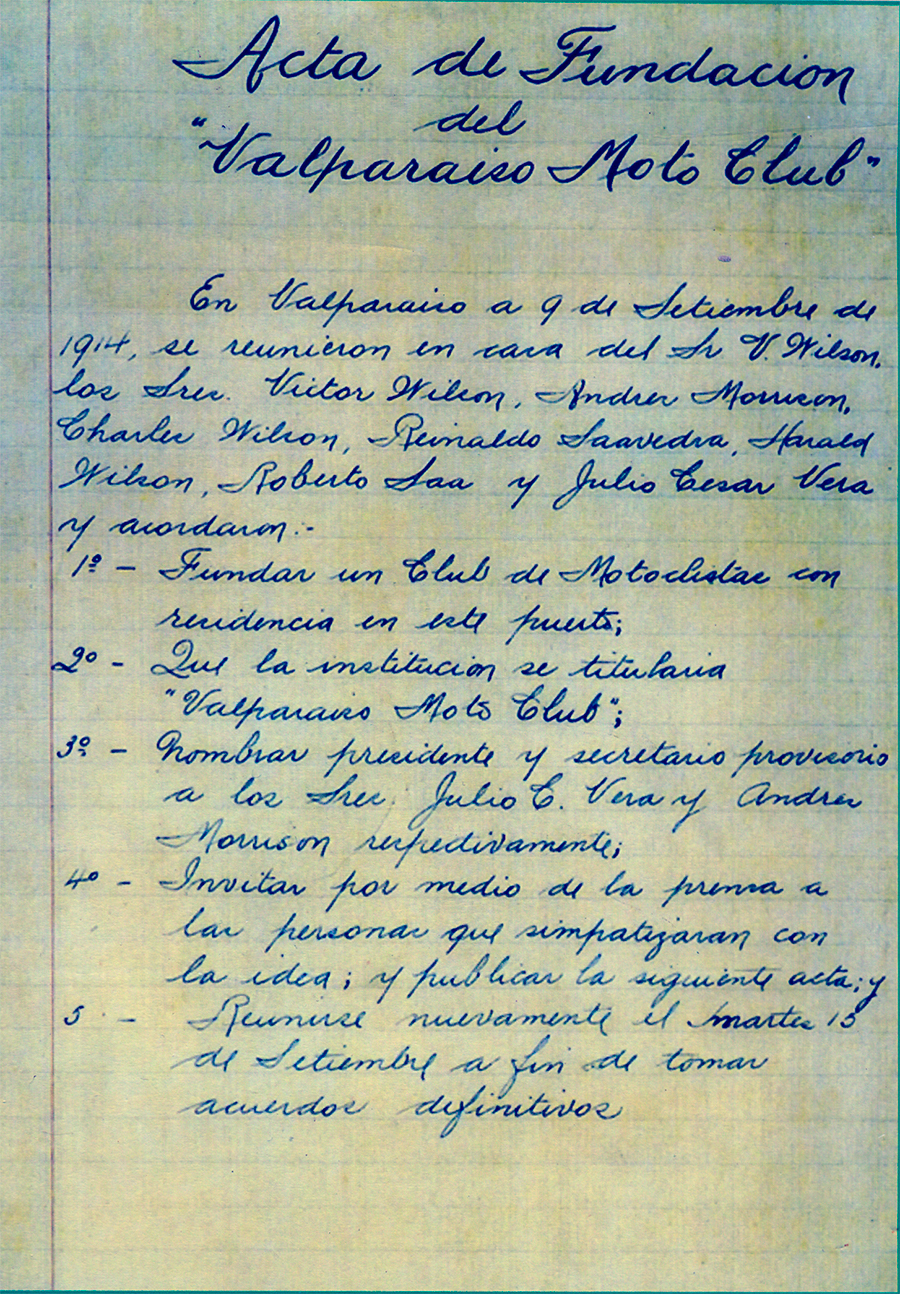 Acta de Fundacion
del
"Valparaiso Moto Club"
En Valparaiso a 9 de Setiembre de
1914, se reunieron en casa del Sr V. Wilson,
los Sres. Victor Wilson, Andres Morrison,
Charles Wilson, Reinaldo Saavedra, Harald
Wilson, Roberto Saa y Julio Cesar Vera
y acordaron:-
1º - Fundar un Club de Motoclistas con
residencia en este puerto;
2º - Que la institucion se titularia
"Valparaiso Moto Club";
3º - Nombrar presidente y secretario provisorio
a los Sres. Julio C. Vera y Andres
Morrison respectivamente;
4º - Invitar por medio de la prensa a
las personas que simpatizaran con
la idea; y publicar la siguiente acta; y
5 - Reunirse nuevamente el martes 15
de Setiembre a fin de tomar
acuerdos definitivos